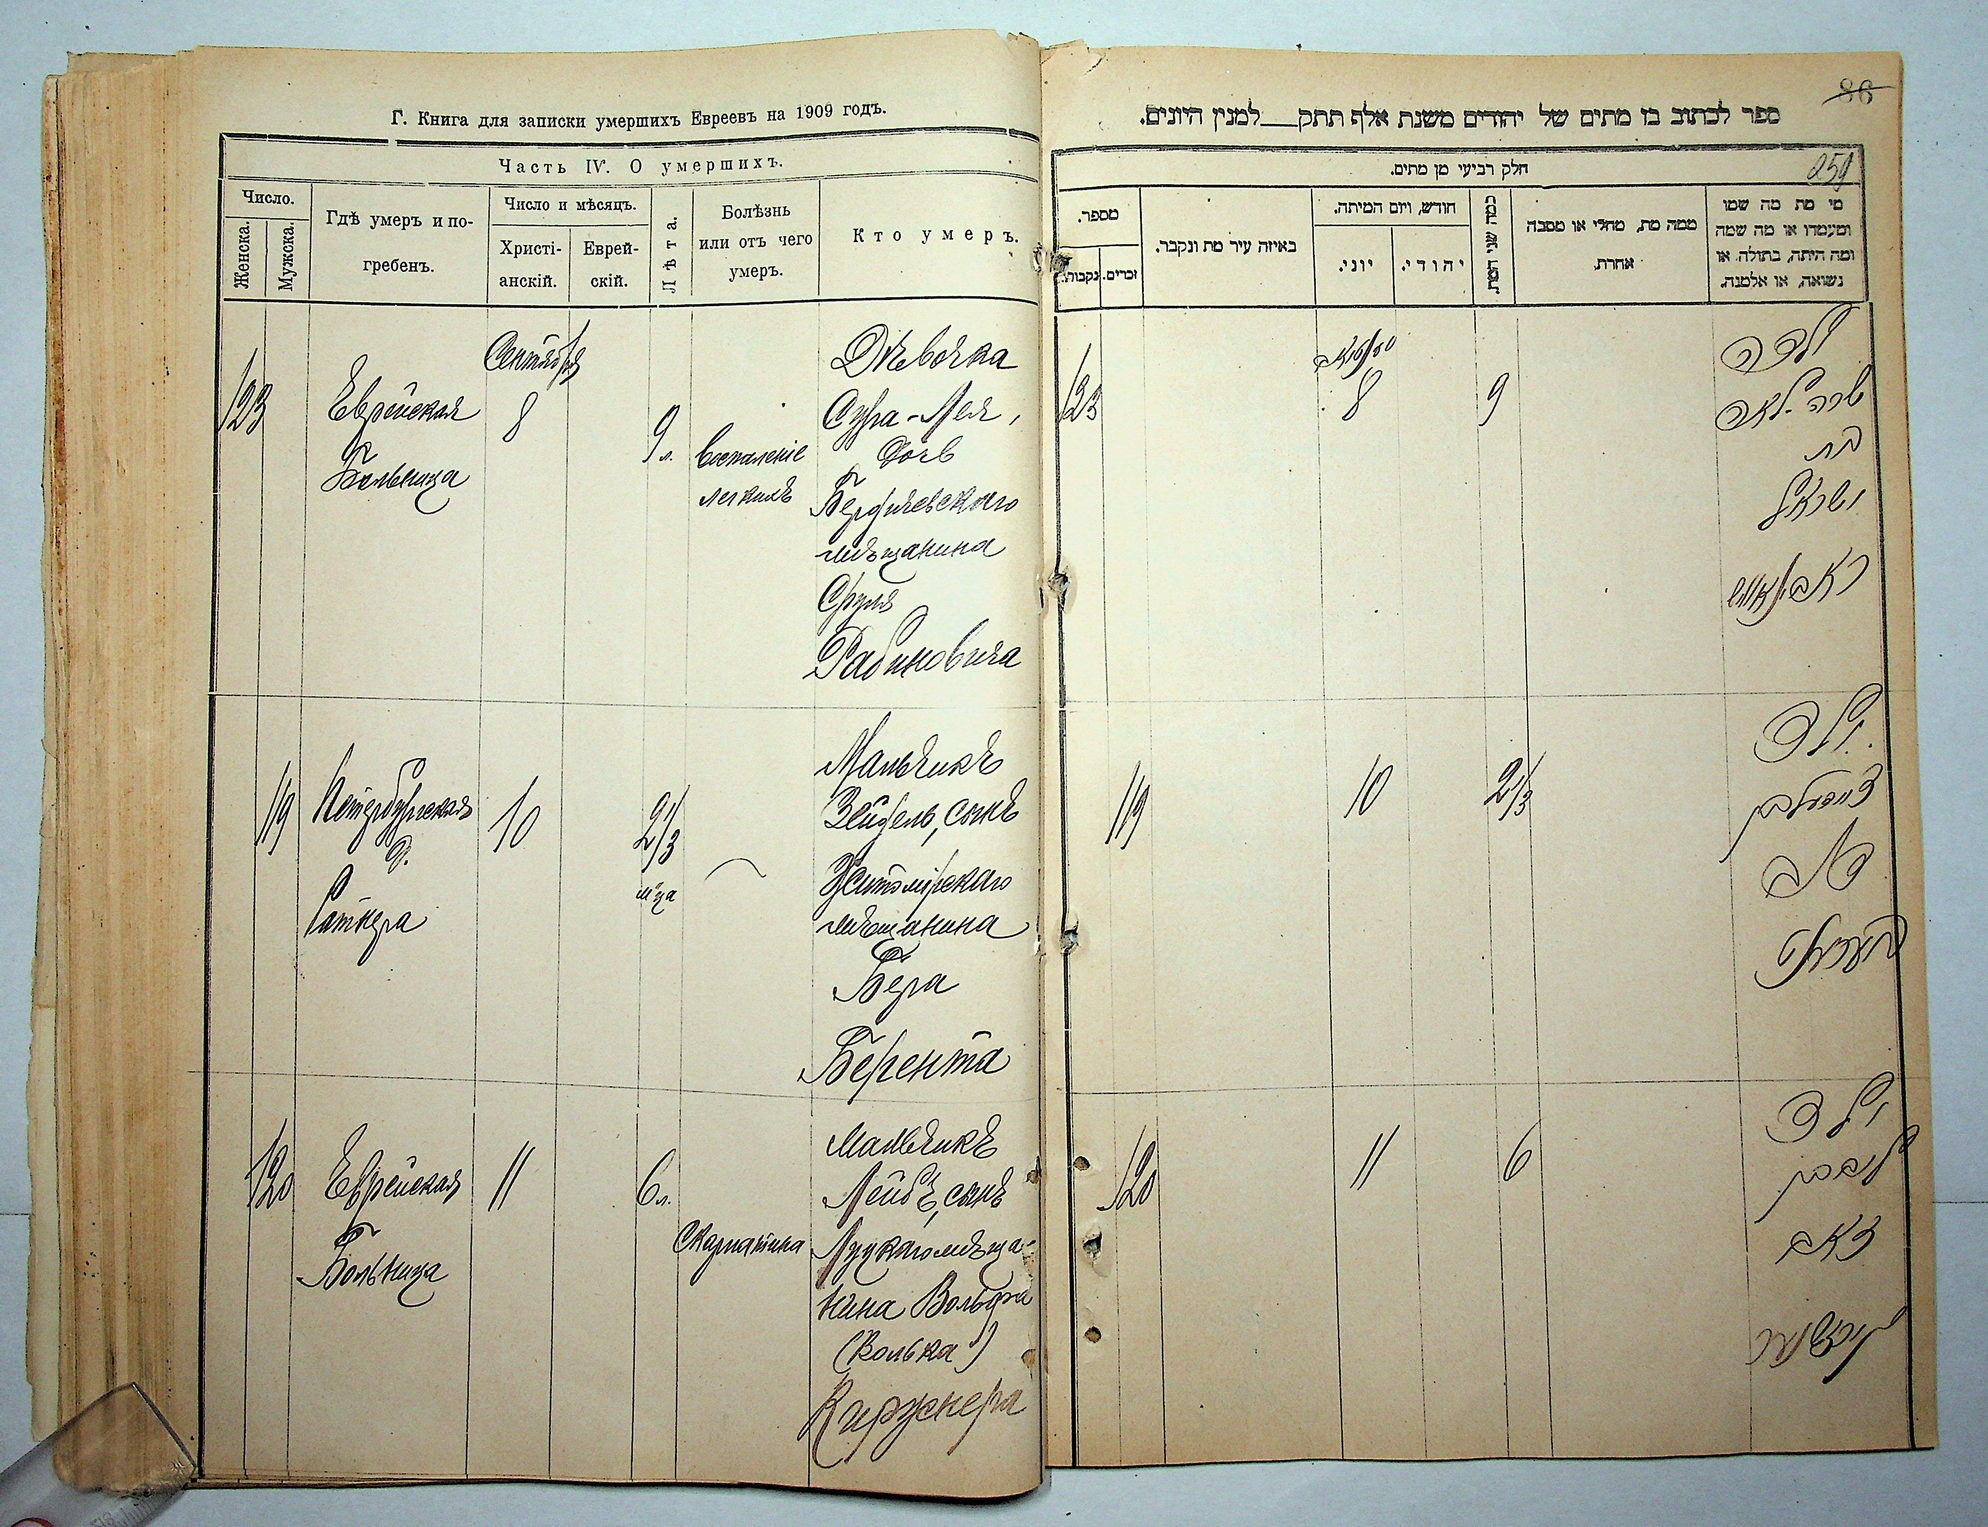 Г. Книга для записки умершихъ Евреевъ на 1909 годъ.
Часть IV. О умершихъ.
Число.
Женска.
Мужска.
Гдѣ умеръ и по-
гребенъ.
Число и мѣсяцъ.
Христі-
анскій.
Еврей-
скій.
Лѣта.
Болѣзнь
или отъ чего
умеръ.
Кто умеръ.
Сентября
123
Еврейская
Больница
8
9 л.
Воспаленіе
легкихъ
Дѣвочка
Сура-Лея,
дочь
Бердичевскаго
мѣщанина
Сруля
Рабиновича
119
Петербургская
д.
Ратнера
10
2 1/3
м-ца
Мальчикъ
Зейдель, сынъ
Житомірскаго
мѣщанина
Бера
Берента
120
Еврейская
Больница
11
6 л.
Скарлатина
Мальчикъ
Лейбъ, сынъ
Луцкаго мѣща-
нина Вольфа
(Волька)
Киржнера
86
ספר לכתוב בו מתים של יהודים משנת אלף תתק___למנין היונים.
259
חלק רביעי מן מתים.
מי מת מה שמו
ומעמדו או מה שמה
ומה היתה, בתולה או
נשואה, או אלמנה.
ממה מת, מחלי או מסבה
אחרת.
כמה שני המת.
חודש, ויום המיתה.
יהודי.
יוני.
באיזה עיר מת ונקבר.
מספר.
זכרים.
נקבות.
ילדה
שרה לאה
בת
ישראל
ראבינאוויטש
9
8
123
ילד
2 1/3
10
119
ילד
6
11
120